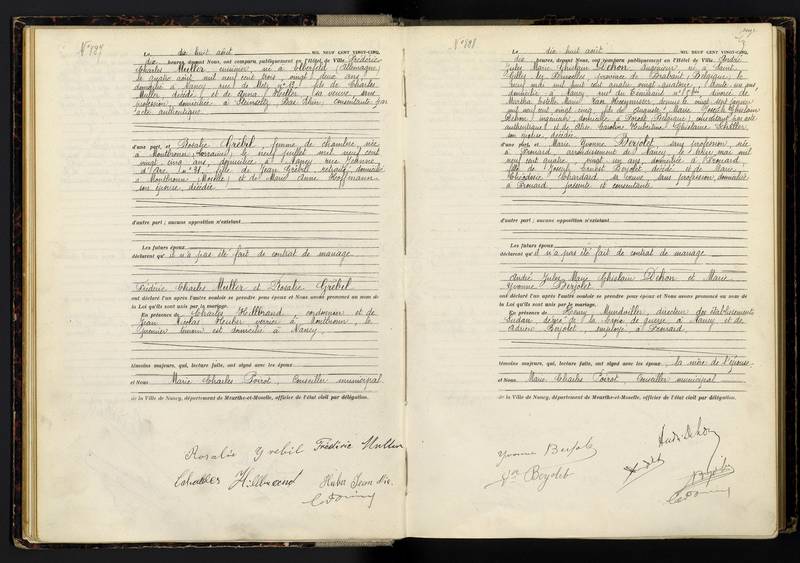 N° 827
Le dix huit août MIL NEUF CENT VINGT-CINQ,
dix heures, devant Nous, ont comparu publiquement en l'Hôtel de Ville Frédéric
Charles Muller cuisinier, né à Elberfeld (Allemagne)
le quatre août mil neuf cent trois, vingt deux ans,
domicilié à Nancy rue de Metz n° 13, fils de Charles
Muller décédé, et de Anna Muller sa veuve sans
profession, domiciliée à Bas Rhin, consentante par
acte authentique
d'une part, et Rosalie Grébil, femme de chambre, née
à Montbronn (Lorraine) le neuf juillet mil neuf cent
vingt cinq ans, domiciliée à Nancy rue Jeanne
d'Arc n° 31, fille de Jean Grébil, retraité, domicilié
à Montbronn (Moselle) et de Marie Anne Hoffmann
son épouse, décédée
d'autre part ; aucune opposition n'existant
Les futurs époux
déclarent qu'il n'a pas été fait de contrat de mariage
Frédéric Charles Muller et Rosalie Grébil
ont déclaré l'un après l'autre vouloir se prendre pour époux et Nous avons prononcé au nom de
la Loi qu'ils sont unis par le mariage.
En présence de Charles Hillbrand, cordonnier et de
Jean Nicolas Heuber verrier à Montbronn, le
premier témoin est domicilié à Nancy,
témoins majeurs, qui, lecture faite, ont signé avec les époux
et Nous Marie Charles Poirot, Conseiller municipal
de la Ville de Nancy, département de Meurthe-et-Moselle, officier de l'état civil par délégation.
Rosalie Grebil Frédéric Muller
Charles Hillbrand Huber Jean Nic.
N° 828
Le dix huit août MIL NEUF CENT VINGT-CINQ,
dix heures, devant Nous, ont comparu publiquement en l'Hôtel de Ville André
Jules Marie Ghislain Dehon Ingénieur, né à Saint
Gilles lez Bruxelles province de Brabant (Belgique) le
neuf mai mil huit cent quatre vingt quatorze, trente un ans,
domicilié à Nancy rue du n° bis, divorcé de
Martha
mil neuf cent vingt cinq, fils de Auguste Marie Joseph Ghislain
Dehon, ingénieur, domicilié à (Belgique), consentant par acte
authentique et de Ghislaine
son épouse, décédée
d'une part, et Marie Yvonne Berjolet, sans profession, née
à Frouard, arrondissement de Nancy, le mai mil
neuf cent quatre, vingt un ans, domiciliée à Frouard,
fille de Joseph Ernest Berjolet décédé et de Marie
Théodorine Chardard sa veuve, sans profession, domiciliée
à Frouard, présente et consentante
d'autre part ; aucune opposition n'existant
Les futurs époux
déclarent qu'il n'a pas été fait de contrat de mariage
André Jules Marie Ghislain Dehon et Marie
Yvonne Berjolet
ont déclaré l'un après l'autre vouloir se prendre pour époux et Nous avons prononcé au nom de
la Loi qu'ils sont unis par le mariage.
En présence de Henry Mundviller, directeur des établissements
décoré de la Croix de guerre à Nancy et de
Adrien Berjolet employé à Frouard,
témoins majeurs, qui, lecture faite, ont signé avec les époux, la mère de l'épouse
et Nous Marie Charles Poirot, Conseiller municipal
de la Ville de Nancy, département de Meurthe-et-Moselle, officier de l'état civil par délégation.
Yvonne Berjolet
André Dehon
Vve Berjolet